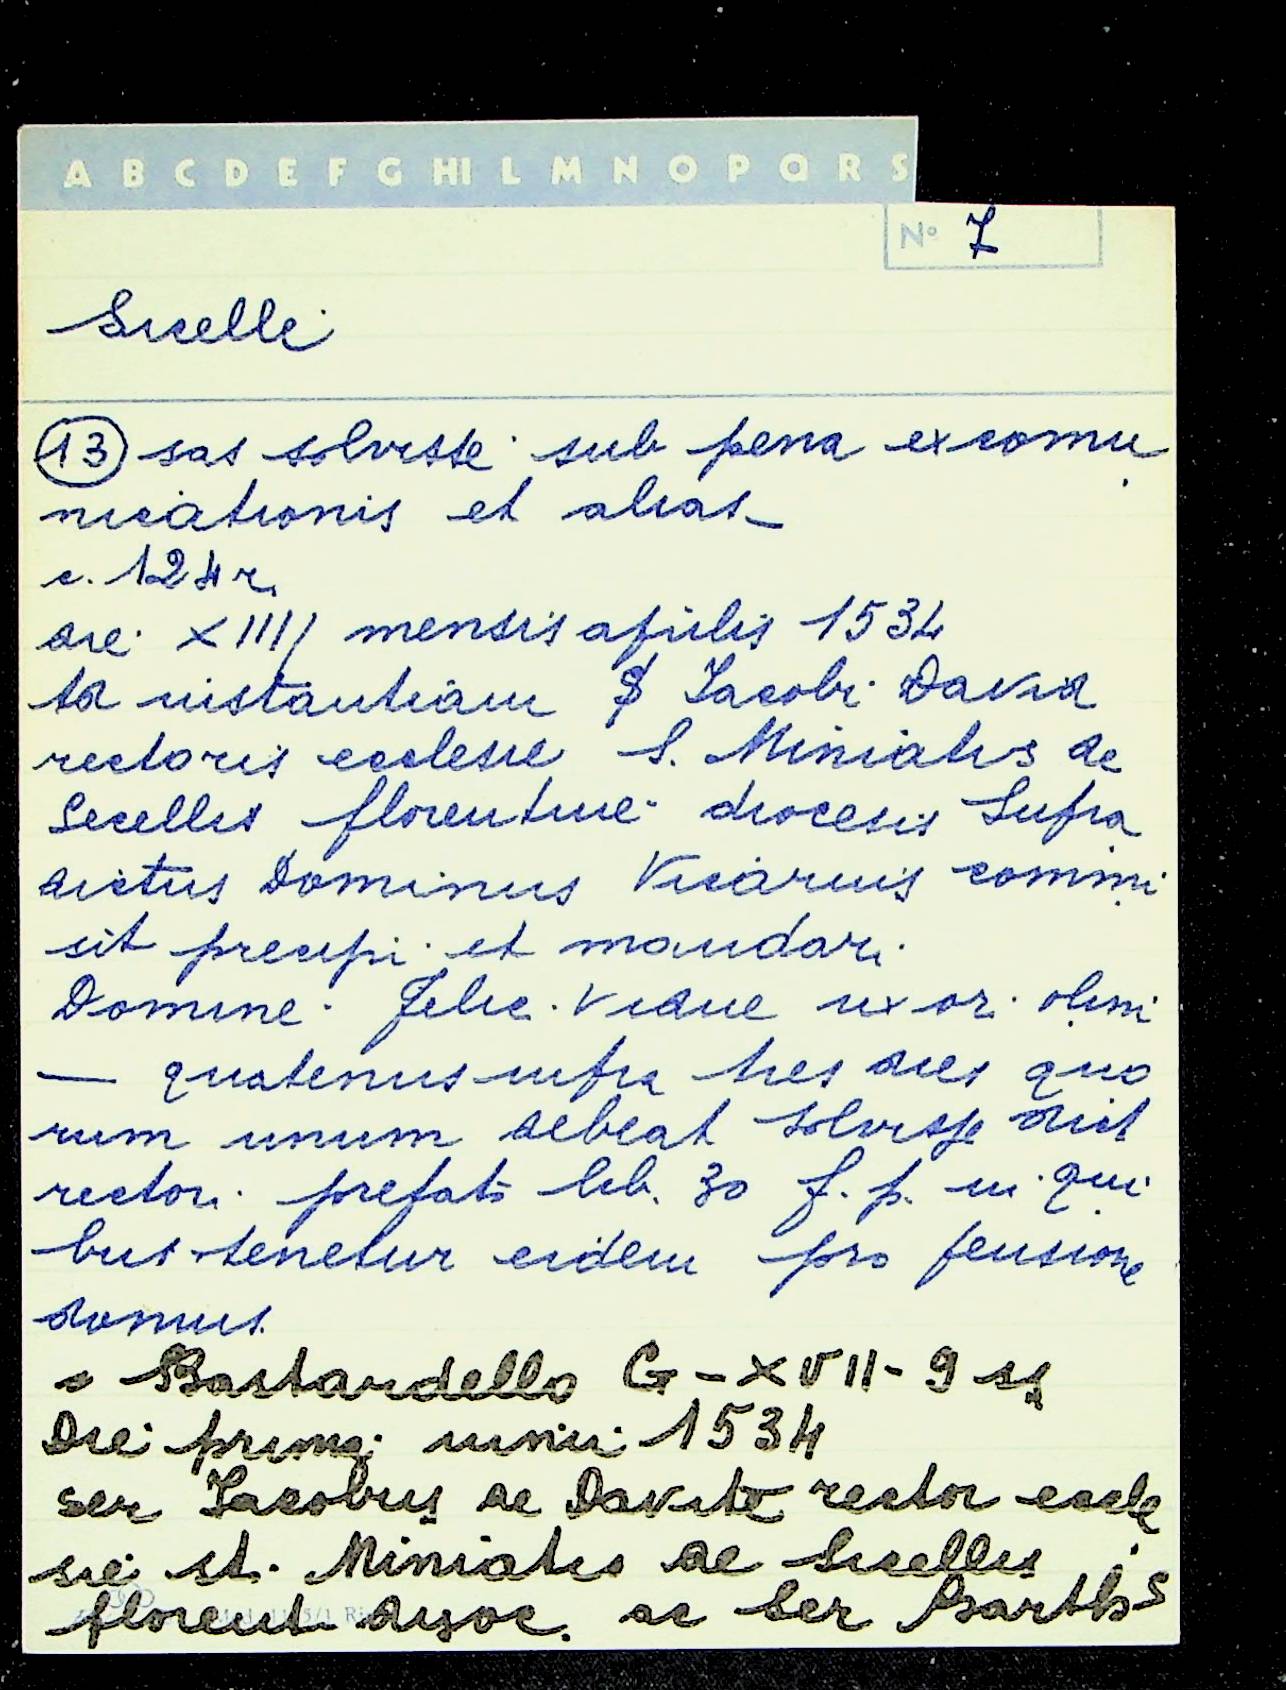 A B C D E F G HI L M N O P Q R S
N° 7
Sicelli
13 sas solvisse sub pena excomu
nicationis et alias
c. 124 r.
die XIIII mensis aprilis 1534
Ad instantiam S Jacobi David
rectoris ecclesie S. Miniatis de
Secellis florentine diocesis Supra
dictus Dominus Vicarius commi
sit precipi et mandari
Domine Felic. vidue uxori olim
— quatenus infra tres dies quo
rum unum debeat solvisse dict
rectori prefato lib. 30 f. p. in qui
bus tenetur eidem pro pensione
domus.
= Bastardello G - XVII - 9 ss
Die prima iunii 1534
ser Jacobus de Davite rector eccle
sie st. Miniatis de Sicellis
florent dyoc. ac Ser Barths